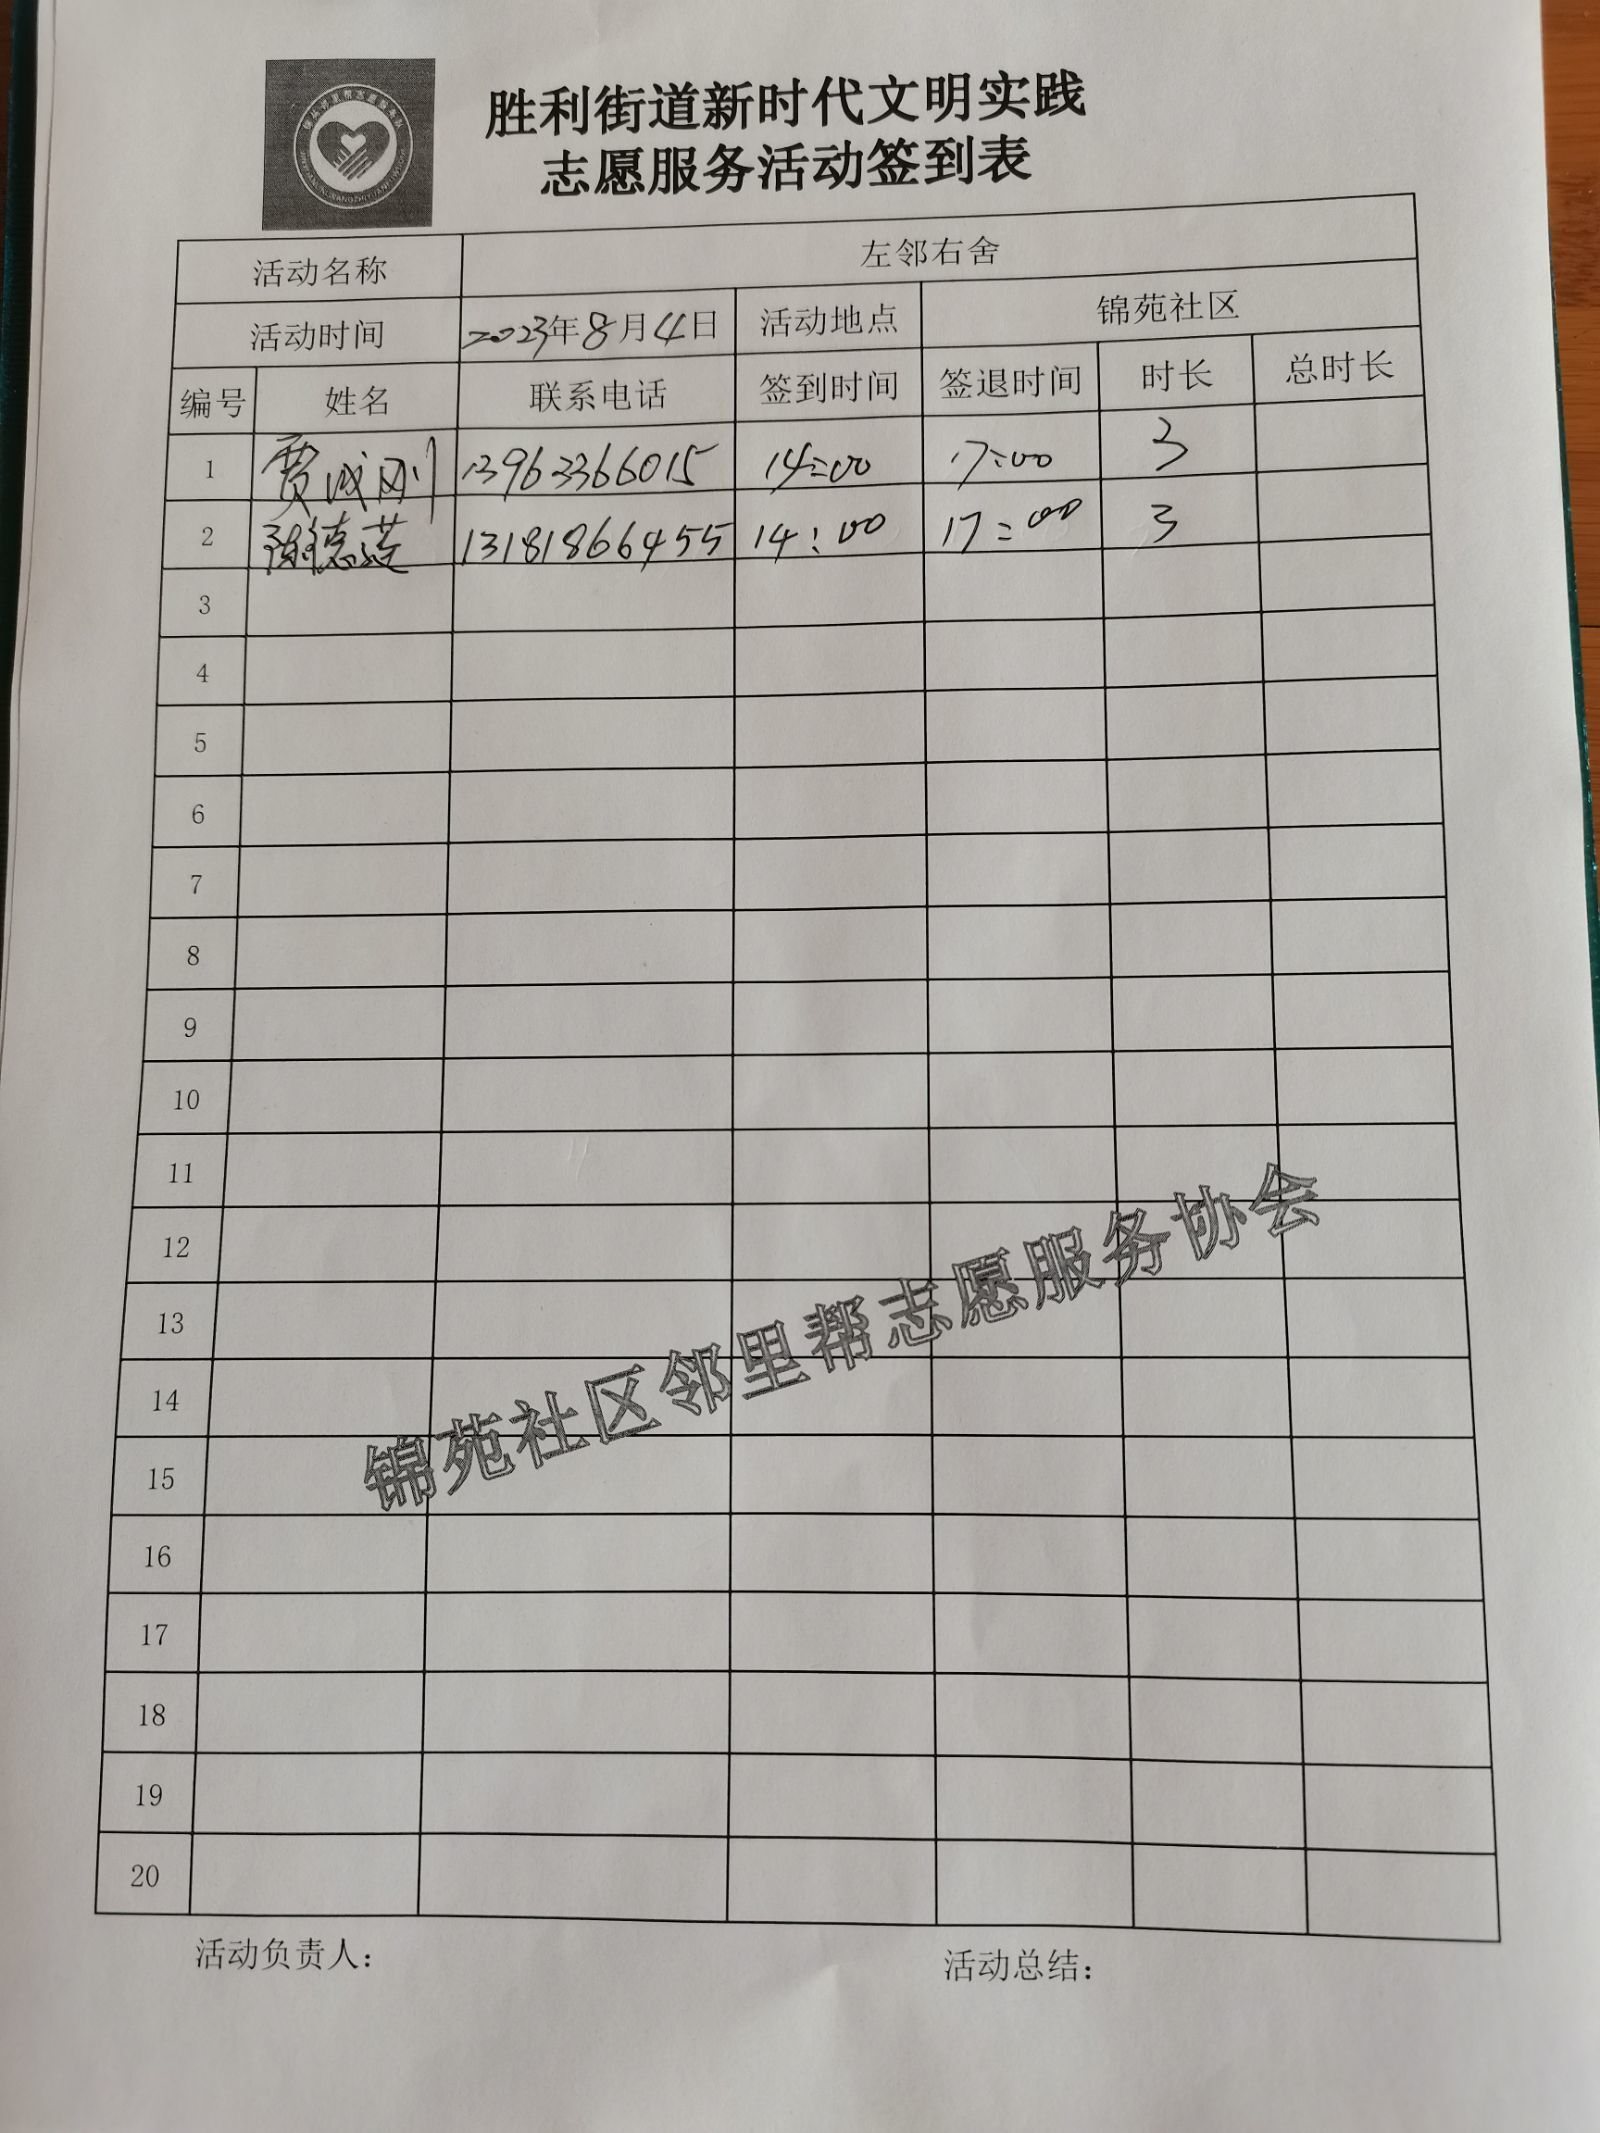 胜利街道新时代文明实践
志愿服务活动签到表
活动名称 左邻右舍
活动时间 2023年8月4日 活动地点 锦苑社区
编号 姓名 联系电话 签到时间 签退时间 时长 总时长
1 贾成刚 13963366015 14:00 17:00 3
2 谢德莲 13181866455 14:00 17:00 3
3
4
5
6
7
8
9
10
11
12
13
14
15
16
17
18
19
20
锦苑社区邻里帮志愿服务协会
活动负责人： 活动总结：